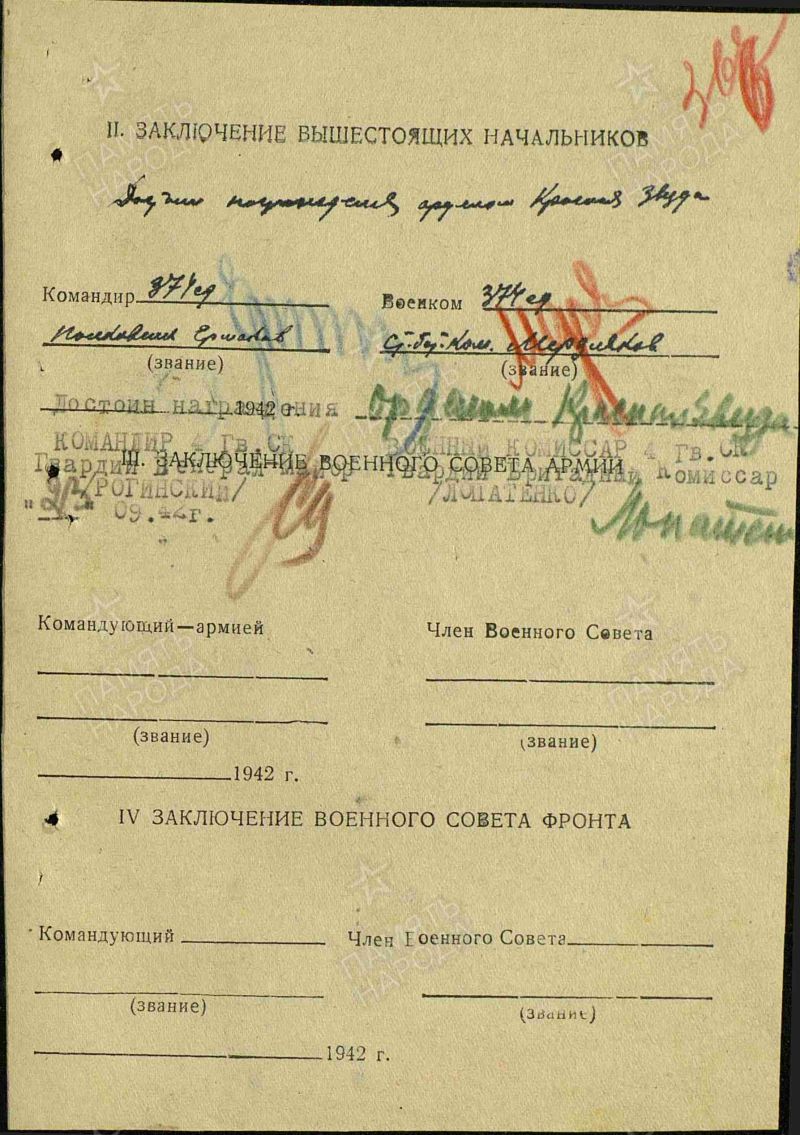 II. ЗАКЛЮЧЕНИЕ ВЫШЕСТОЯЩИХ НАЧАЛЬНИКОВ
Достоин награждения орденом Красная Звезда
Командир 374 сд Военком 374 сд
Полковник Ермаков Ст. бат. ком.
(звание) (звание)
1942 г.
Достоин награждения орденом Красная Звезда
КОМАНДИР 4 Гв.СК ВОЕННЫЙ КОМИССАР 4 Гв.СК
III. ЗАКЛЮЧЕНИЕ ВОЕННОГО СОВЕТА АРМИИ
Гвардии Генерал Майор Гвардии Бригадный Комиссар
/РОГИНСКИЙ/ /ЛОПАТЕНКО/
09.42г.
Командующий—армией Член Военного Совета
(звание) (звание)
1942 г.
IV ЗАКЛЮЧЕНИЕ ВОЕННОГО СОВЕТА ФРОНТА
Командующий Член Военного Совета
(звание) (звание)
1942 г.
ПАМЯТЬ НАРОДА